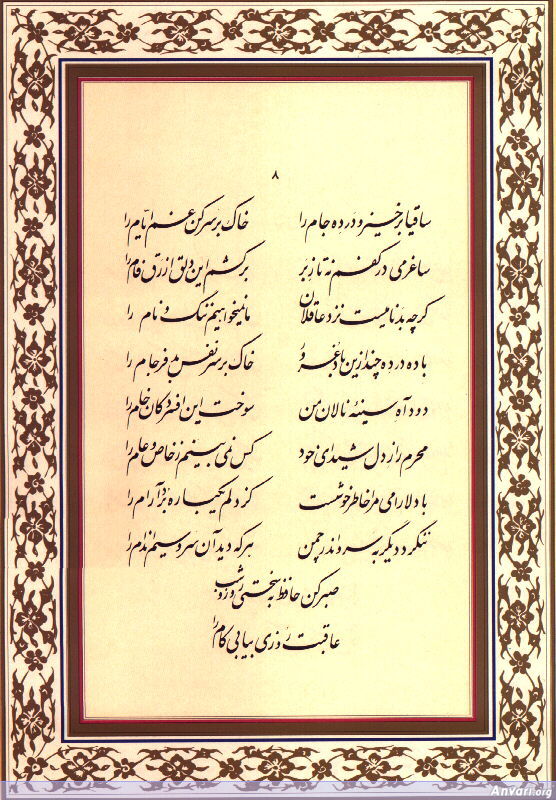 ۸
ساقیا برخیز و درده جام را خاک بر سر کن غم ایام را
ساغر می در کفم نه تا ز بر برکشم این دلق ازرق فام را
گرچه بدنامیست نزد عاقلان ما نمیخواهیم ننگ و نام را
باده درده چند ازین باد غرور خاک بر سر نفس بدفرجام را
دود آه سینهٔ نالان من سوخت این افسردگان خام را
محرم راز دل شیدای خود کس نمی بینم ز خاص و عام را
با دلارامی مرا خاطر خوشست کز دلم یکباره برد آرام را
ننگرد دیگر به سرو اندر چمن هر که دید آن سرو سیم اندام را
صبر کن حافظ به سختی روز و شب
عاقبت روزی بیابی کام را
Anvari.org